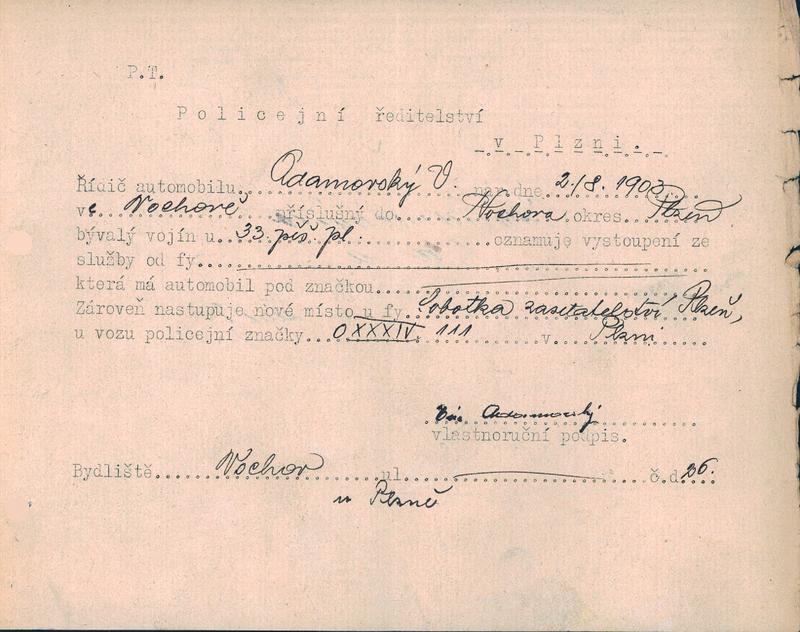 P.T.
Policejní ředitelství
v Plzni.
Řídič automobilu Adamovský V. nar.dne 2./8. 1903
ve Vochově příslušný do Vochova okres Plzeň
bývalý vojín u 33. pěš. pl. oznamuje vystoupení ze
služby od fy.
která má automobil pod značkou
Zároveň nastupuje nové místo u fy. Sobotka zasilatelství Plzeň,
u vozu policejní značky O XXXIV. 111 v Plzni
Adamovský
vlastnoruční podpis.
Bydliště Vochov ul č.d 36.
u Plzně